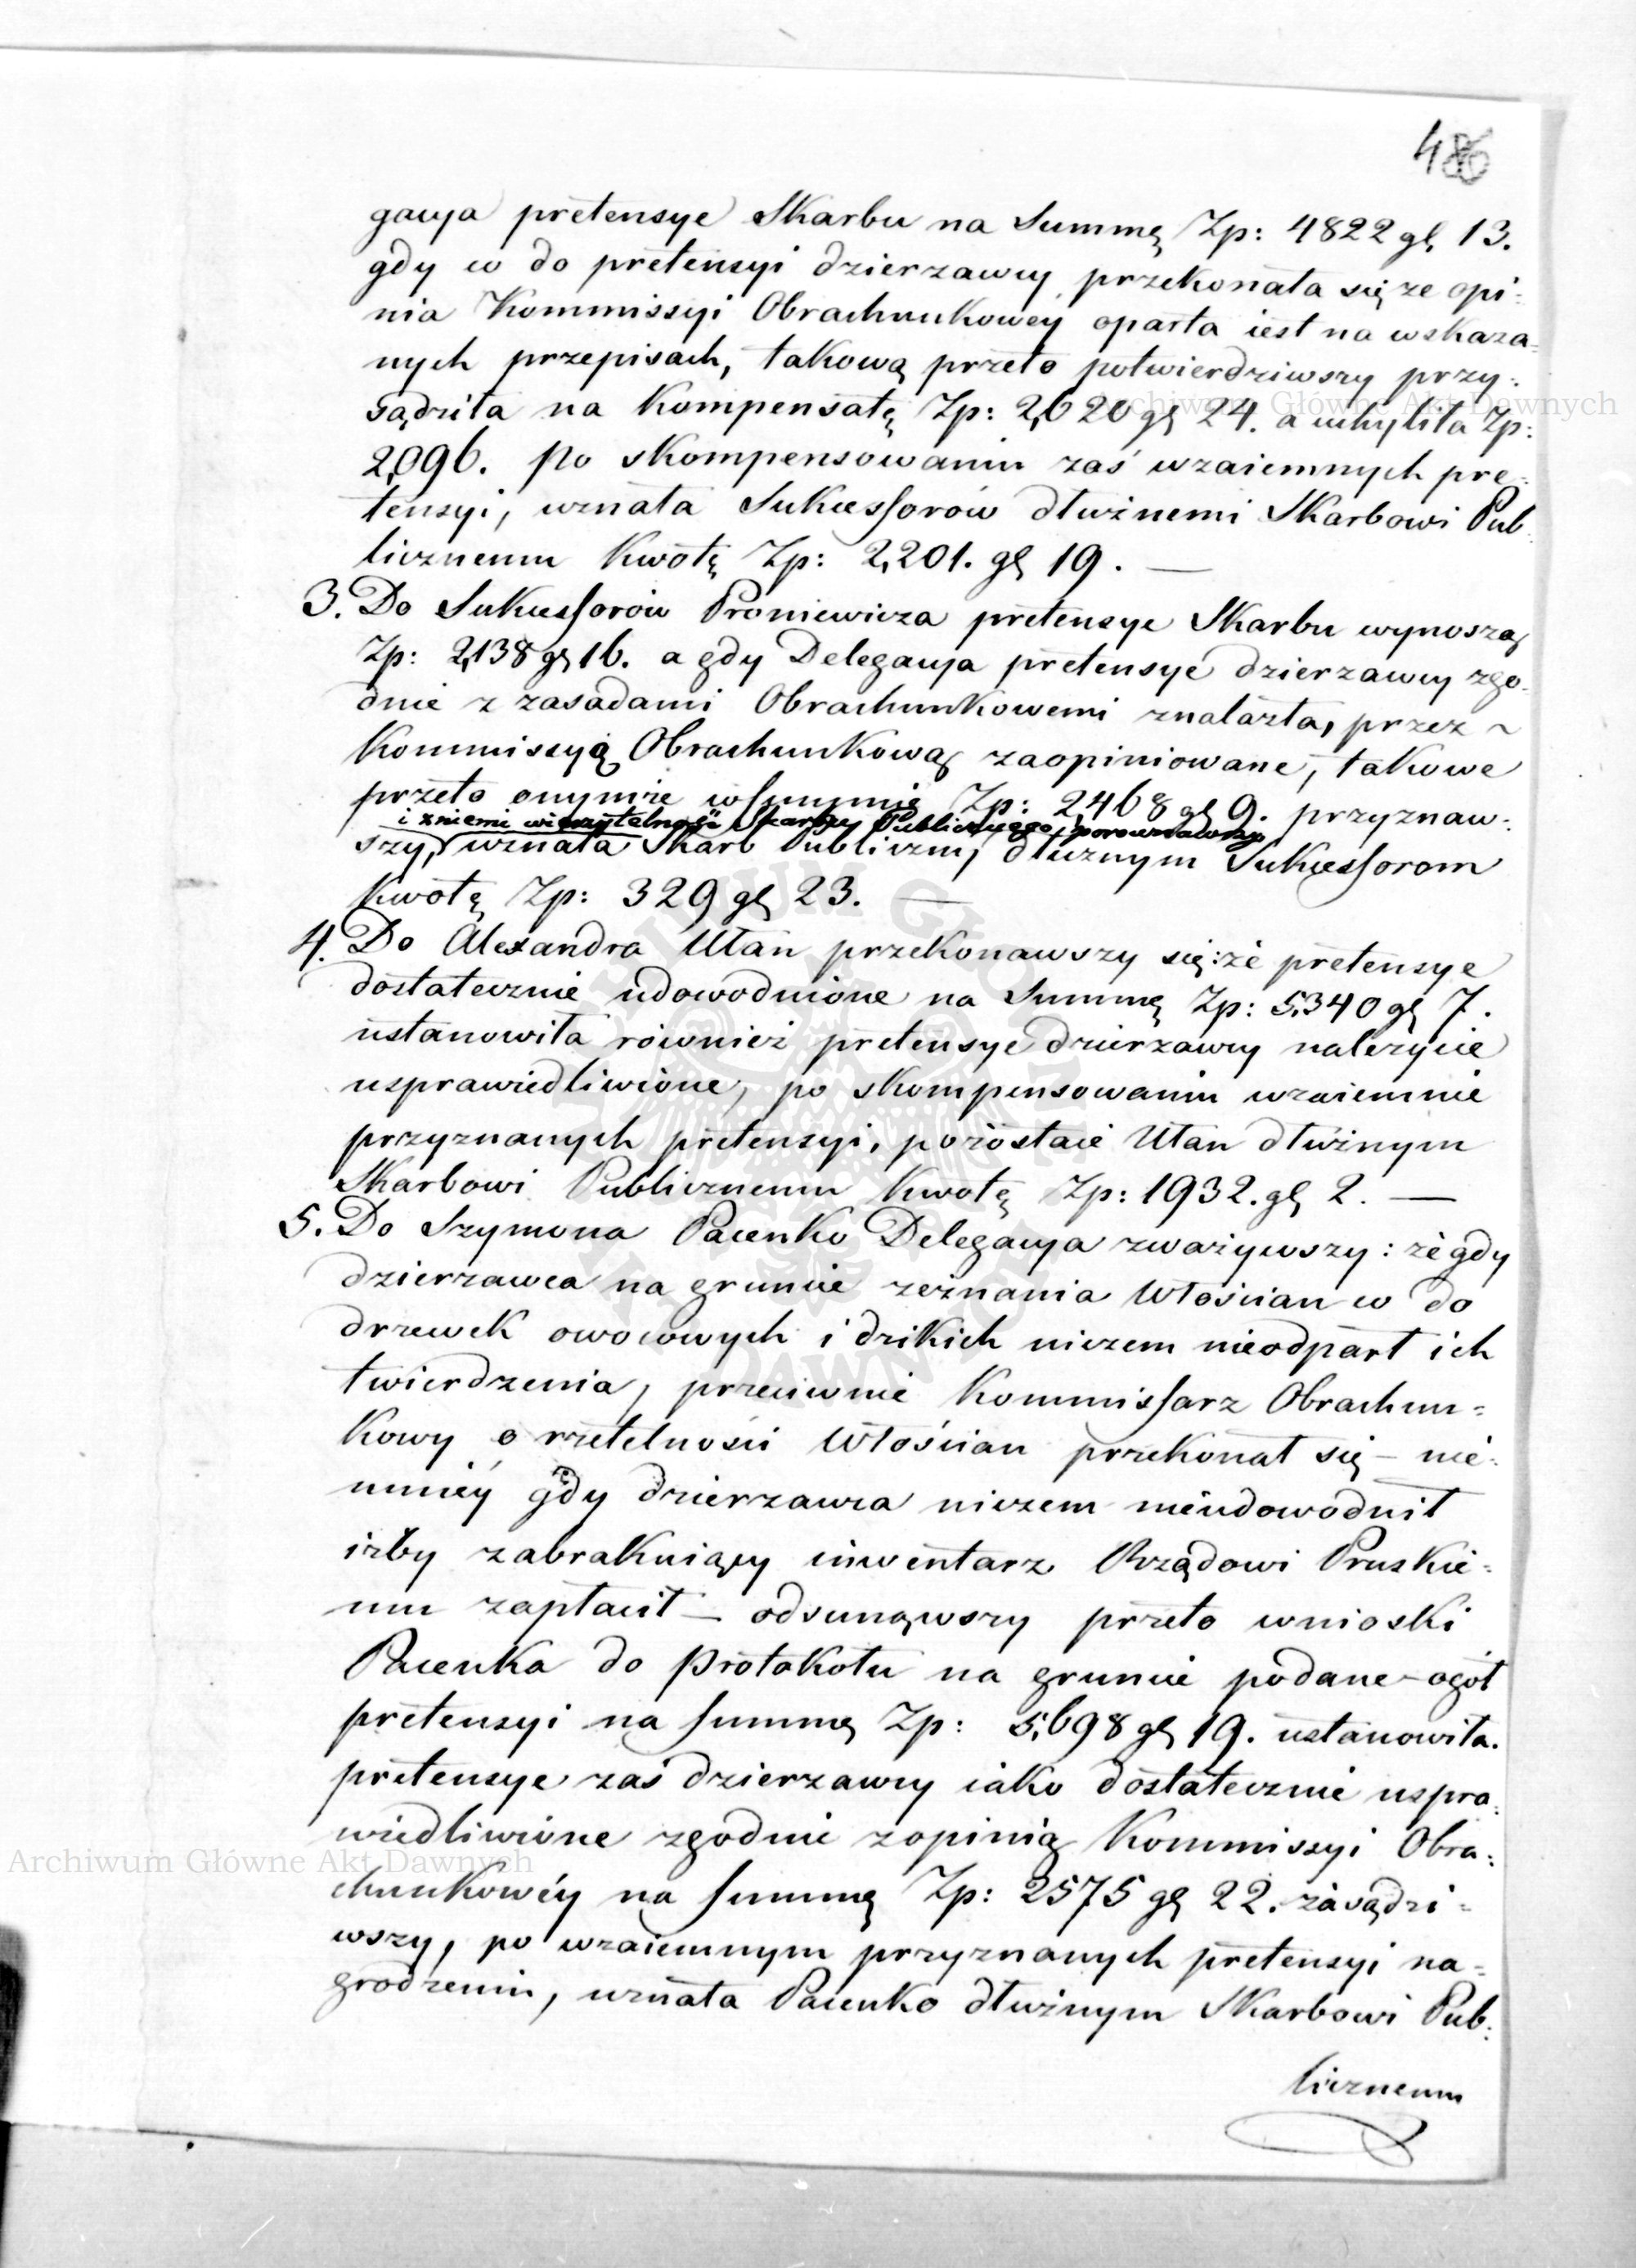 486
gacya pretensye Skarbu na Summę Zp: 4822 gł 13.
gdy w do pretensyi dzierzawcy przekonała się ze opi:
nia Kommissyi Obrachunkowey oparta iest na wskaza:
nych przepisach, takową przeto potwierdziwszy przy:
sądziła na Kompensatę Zp: 2,620 gł 24. a uchyliła Zp:
2,096. po skompensowaniu zaś wzaiemnych pre:
tensyi, uznała Sukcessorów dłużnemi Skarbowi Pub:
licznemu Kwotę Zp: 2,201. gł 19. —
3. Do Sukcessorów Proniewicza pretensye Skarbu wynoszą
Zp: 2,138 gł 16. a gdy Delegacya pretensye dzierzawcy zgo:
dnie z zasadami Obrachunkowemi znalazła, przez ~
Kommissyą Obrachunkową zaopiniowane, takowe
przeto onymże w Summie Zp: 2,468 gł 9. przyznaw:
i z niemi wierzytelność Skarbu Publicznego porownawszy
szy, uznała Skarb Publiczny dłużnym Sukcessorom
Kwotę Zp: 329 gł 23. —
4. Do Alexandra Ułan przekonawszy się: że pretensye
dostatecznie udowodnione na Summę Zp: 5,340 gł 7.
ustanowiła również pretensye dzierzawcy należycie
usprawiedliwione, po skompensowaniu wzaiemnie
przyznanych pretensyi, pozostaie Ułan dłużnym
Skarbowi Publicznemu Kwotę Zp: 1932. gł 2. —
5. Do Szymona Pacenko Delegacya zważywszy: że gdy
dzierzawca na gruncie zeznania Włościan w do
drzewek owocowych i dzikich niczem nieodparł ich
twierdzenia, przeciwnie Kommissarz Obrachun=
kowy o rzetelności Włościan przekonał się — nie:
mniéy gdy dzierzawca niczem nieudowodnił
iżby zabrakuiący inwentarz Rządowi Pruskie=
mu zapłacił — odsunąwszy przeto wnioski
Pacenka do Protokołu na gruncie podane — ogół
pretensyi na Summę Zp: 5,698 gł 19. ustanowiła.
pretensye zaś dzierzawcy iako dostatecznie uspra:
wiedliwione zgodnie z opinią Kommissyi Obra:
chunkowéy na Summę Zp: 2575 gł 22. zasądzi=
wszy, po wzaiemnym przyznanych pretensyi na=
grodzeniu, uznała Pacenko dłużnym Skarbowi Pub:
licznemu
Archiwum Główne Akt Dawnych
Archiwum Główne Akt Dawnych